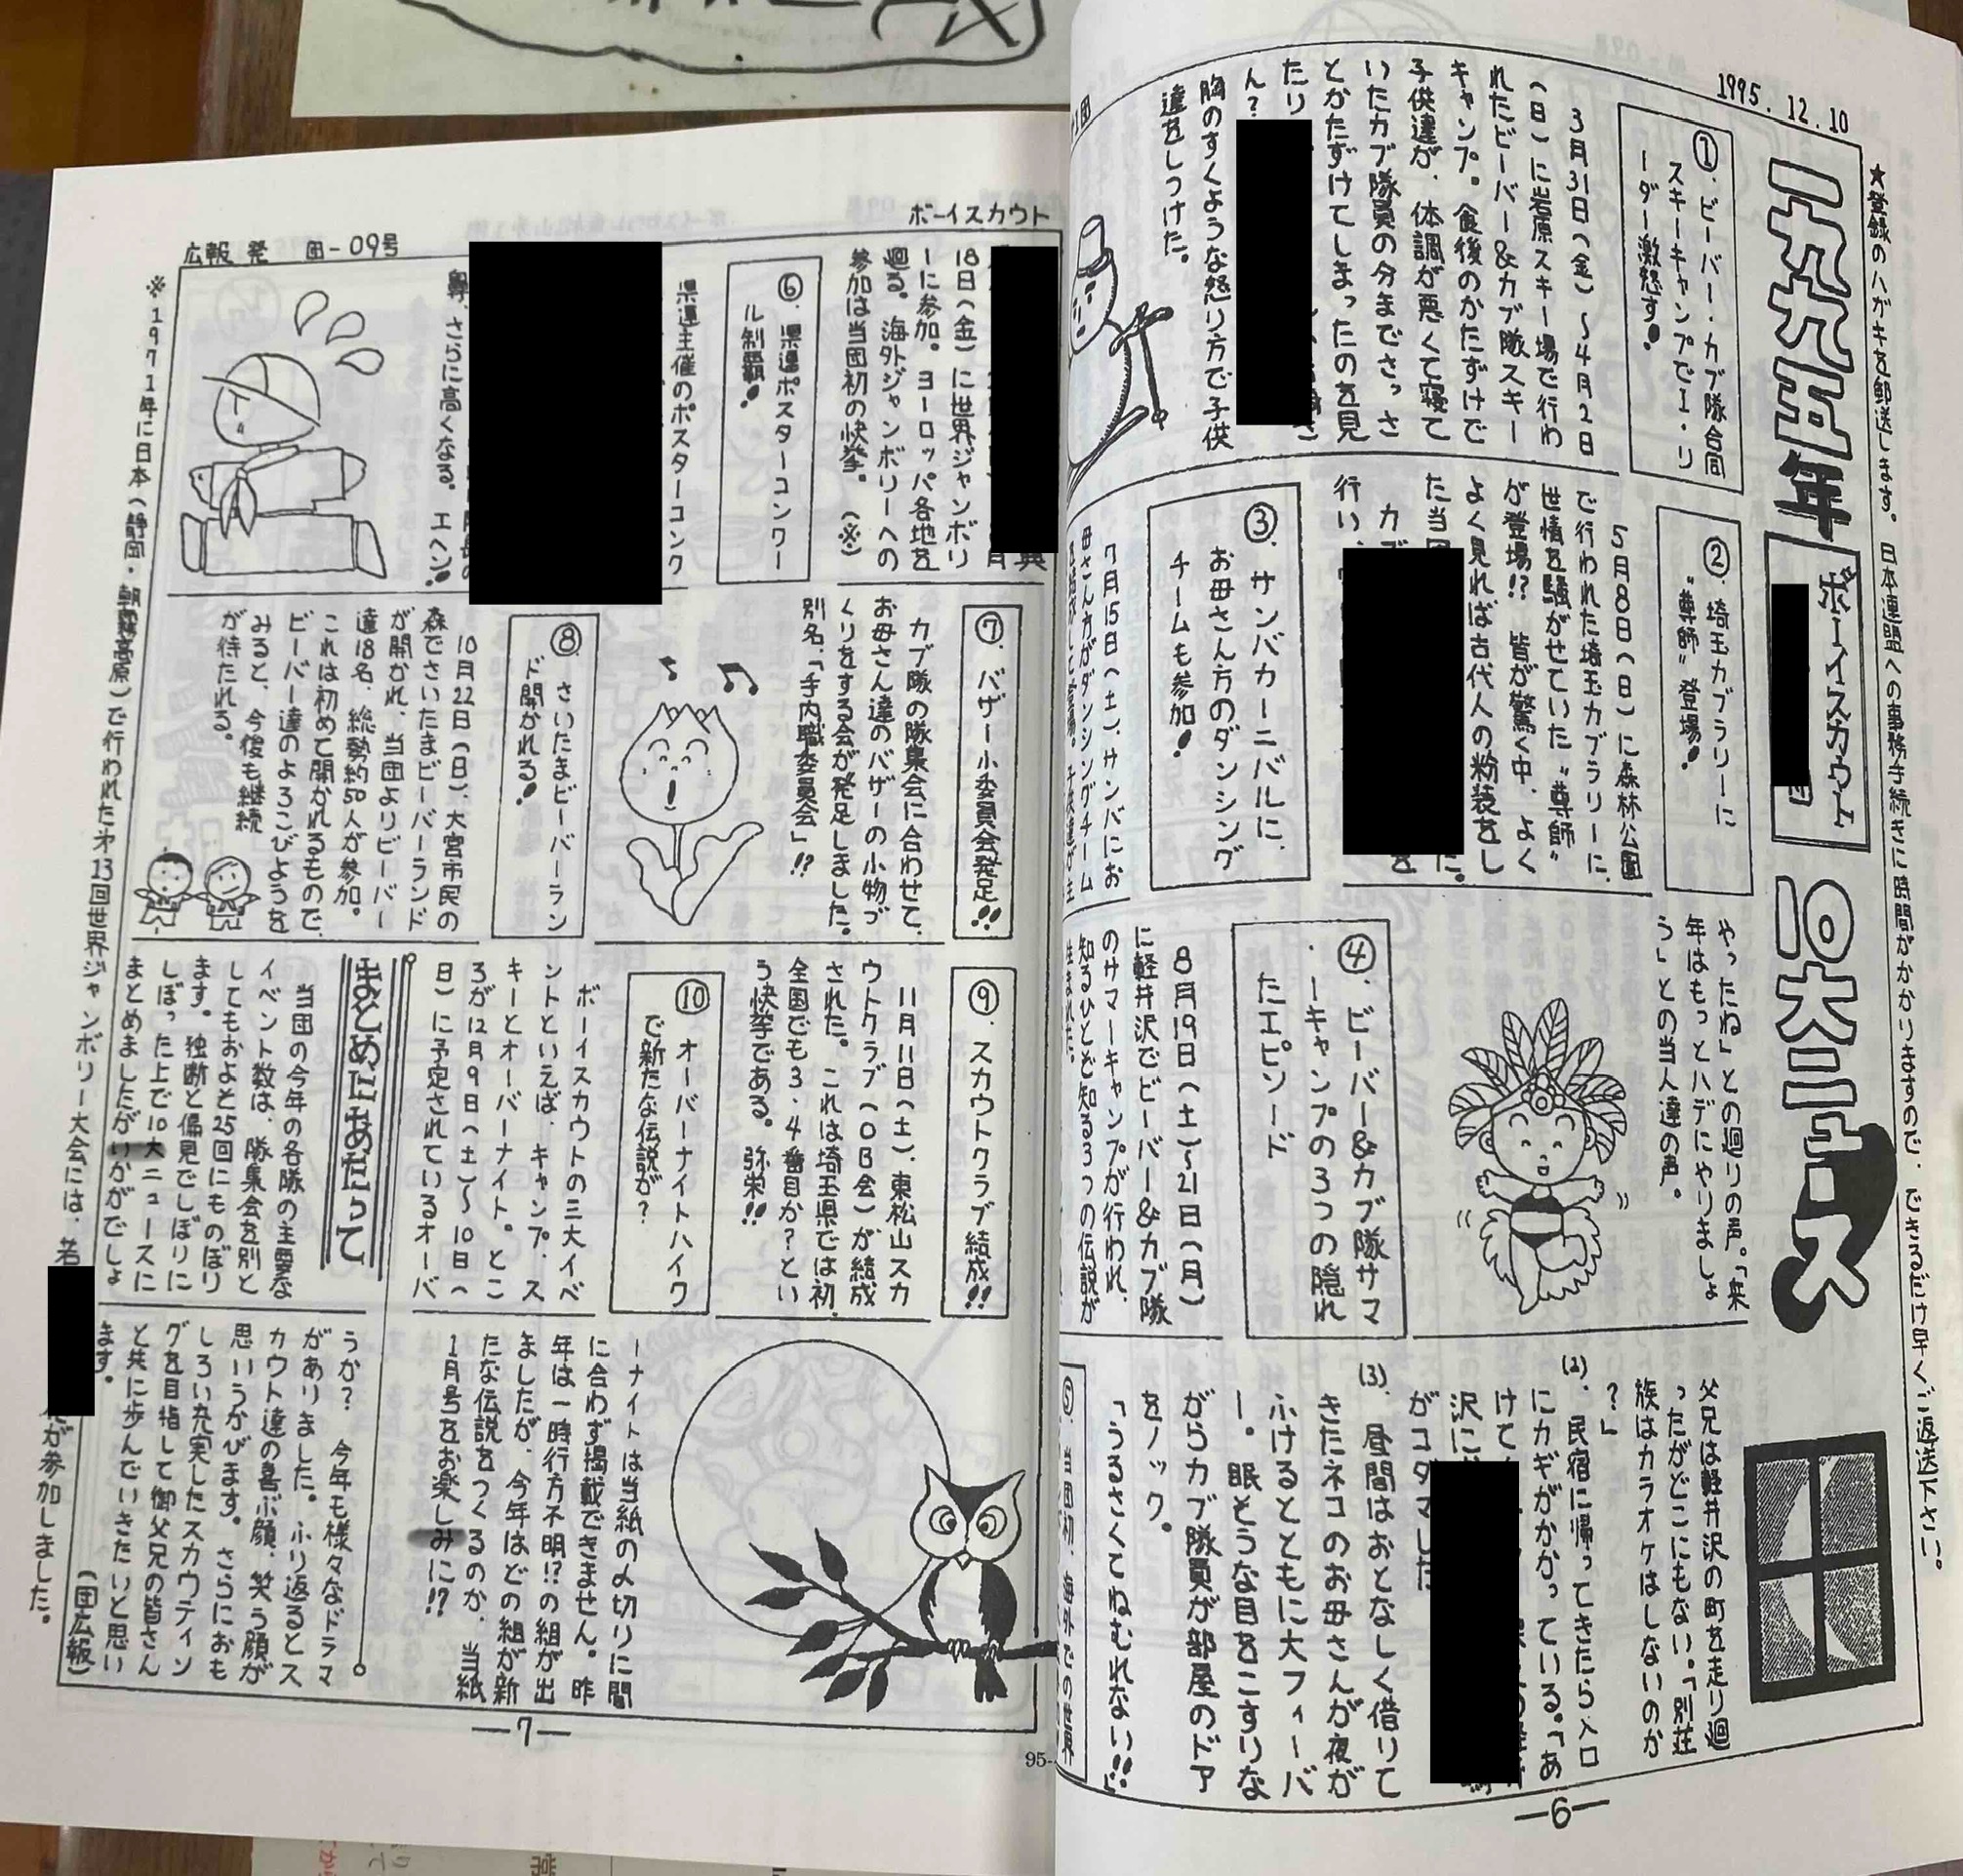 1995.12.10
★登録のハガキを郵送します。日本連盟への事務手続きに時間がかかりますので、できるだけ早くご返送下さい。
一九九五年
ボーイスカウト
10大ニュース
①.ビーバー・カブ隊合同
スキーキャンプでI・リ
ーダー激怒す!
3月31日(金)~4月2日
(日)に岩原スキー場で行わ
れたビーバー&カブ隊スキー
キャンプ。食後のかたずけで
子供達が、体調が悪くて寝て
いたカブ隊員の分までさっさ
とかたずけてしまったのを見
たり
ん?
胸のすくような怒り方で子供
達をしつけた。
②.埼玉カブラリーに
“尊師”登場!
5月8日(日)に森林公園
で行われた埼玉カブラリーに、
世情を騒がせていた“尊師”
が登場!? 皆が驚く中、よく
よく見れば古代人の粉装をし
た当団
た。
カブ
を
行い、
③.サンバカーニバルに、
お母さん方のダンシング
チームも参加!
7月15日(土)、サンバにお
母さん方がダンシングチーム
やったね」との廻りの声。「来
年はもっとハデにやりましょ
う」との当人達の声。
④.ビーバー&カブ隊サマ
ーキャンプの3つの隠れ
たエピソード
8月19日(土)~21日(月)
に軽井沢でビーバー&カブ隊
のサマーキャンプが行われ、
知るひとぞ知る3つの伝説が
生まれた。
父兄は軽井沢の町を走り廻
ったがどこにもない。「別荘
族はカラオケはしないのか
?」
(2).民宿に帰ってきたら入口
にカギがかかっている。「あ
けて
沢に
がコダマした
(3).昼間はおとなしく借りて
きたネコのお母さんが夜が
ふけるとともに大フィーバ
ー。眠そうな目をこすりな
がらカブ隊員が部屋のドア
をノック。
「うるさくてねむれない!!」
⑤.当団初、海外での世界
—6—
ボーイスカウト
広報 発 団-09号
18日(金)に世界ジャンボリ
ーに参加。ヨーロッパ各地を
廻る。海外ジャンボリーへの
参加は当団初の快挙。(※)
⑥.県連ポスターコンクー
ル制覇!
県連主催のポスターコンク
鼻、さらに高くなる。エヘン!
⑦.バザー小委員会発足!!
カブ隊の隊集会に合わせて、
お母さん達のバザーの小物づ
くりをする会が発足しました。
別名、「手内職委員会」!?
⑧.さいたまビーバーラン
ド開かれる!
10月22日(日)、大宮市民の
森でさいたまビーバーランド
が開かれ、当団よりビーバー
達18名、総勢約50人が参加。
これは初めて開かれるもので、
ビーバー達のよろこびようを
みると、今後も継続
が待たれる。
⑨.スカウトクラブ結成!!
11月11日(土)、東松山スカ
ウトクラブ(OB会)が結成
された。これは埼玉県では初、
全国でも3・4番目か?とい
う快挙である。弥栄!!
⑩.オーバーナイトハイク
で新たな伝説が?
ボーイスカウトの三大イベ
ントといえば、キャンプ、ス
キーとオーバーナイト。とこ
ろが12月9日(土)~10日(
日)に予定されているオーバ
ーナイトは当紙の〆切りに間
に合わず掲載できません。昨
年は一時行方不明!?の組が出
ましたが、今年はどの組が新
たな伝説をつくるのか、当紙
1月号をお楽しみに!?
まとめにあたって
当団の今年の各隊の主要な
イベント数は、隊集会を別と
してもおよそ25回にものぼり
ます。独断と偏見でしぼりに
しぼった上で10大ニュースに
まとめましたがいかがでしょ
うか? 今年も様々なドラマ
がありました。ふり返るとス
カウト達の喜ぶ顔、笑う顔が
思いうかびます。さらにおも
しろい充実したスカウティン
グを目指して御父兄の皆さん
と共に歩んでいきたいと思い
ます。
(団広報)
※1971年に日本(静岡・朝霧高原)で行われた第13回世界ジャンボリー大会には、若
が参加しました。
—7—
95-